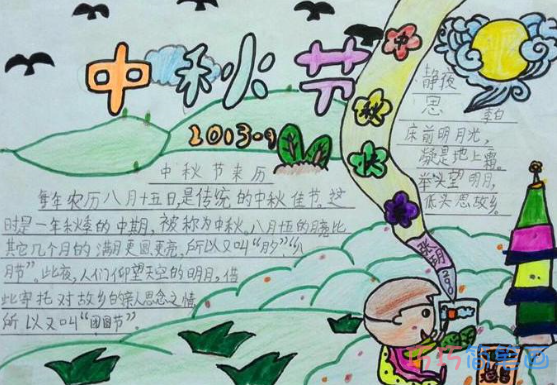 中秋节
2013-9
中秋节来历
每年农历八月十五日,是传统的中秋佳节。这
时是一年秋季的中期,被称为中秋。八月十五的月亮比
其它几个月的满月更圆更亮,所以又叫“月夕”“八
月节”。此夜,人们仰望天空的明月,借
此寄托对故乡的亲人思念之情,
所以又叫“团圆节”。
中
秋
快
静夜
思
李白
床前明月光,
凝是地上霜。
举头望明月,
低头思故乡。
巧巧简笔画